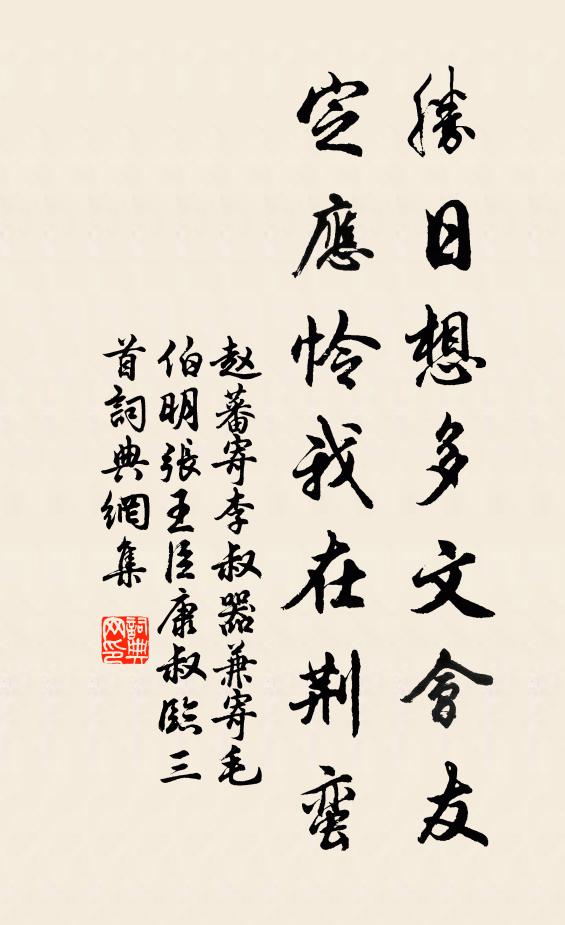 勝日想多文會友
定應怜我在荆蛮
赵蕃寄李叔器兼寄毛
伯明張王臣康叔臨三
首詞典網集
詞典
网印